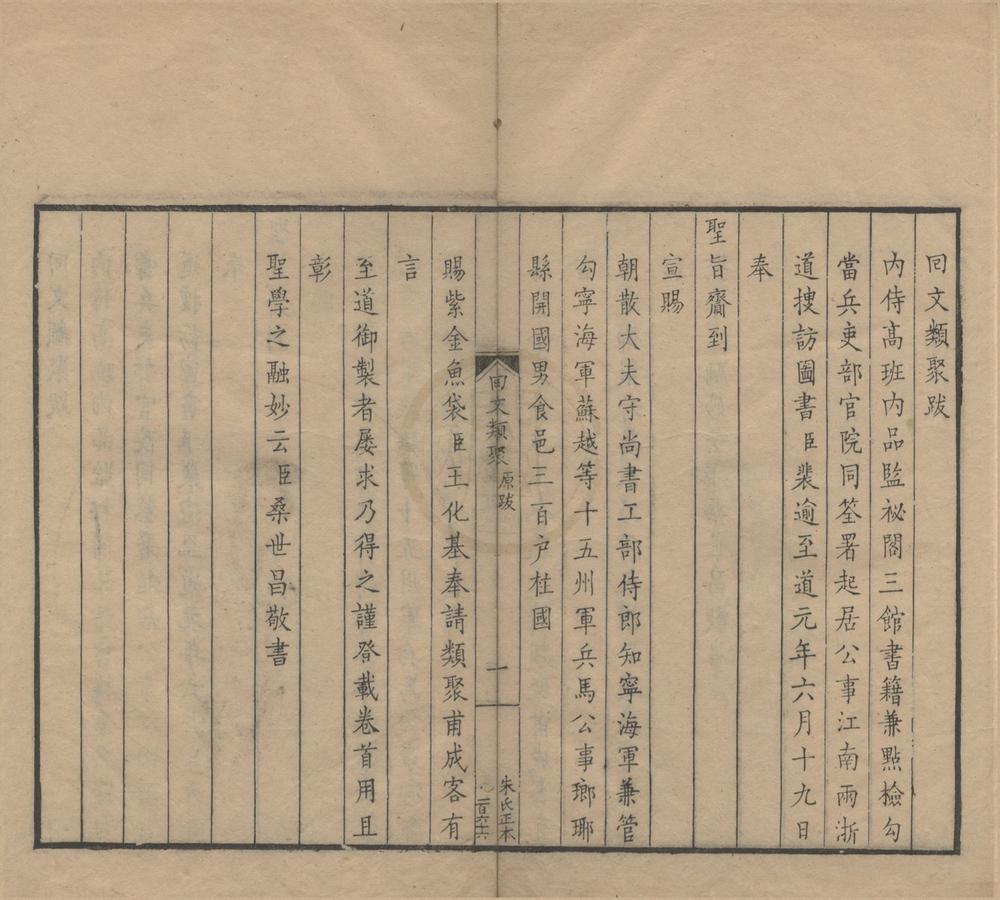 回文類聚跋
内侍高班内品監祕閣三館書籍兼㸃檢勾
當兵吏部官院同筌署起居公事江南兩浙
道捜訪圖書臣裴逾至道元年六月十九日
奉
聖旨齎到
宣賜
朝散大夫守尚書工部侍郎知寧海軍兼管
勾寧海軍蘇越等十五州軍兵馬公事瑯琊
縣開國男食邑三百户柱國
回文類聚
原跋
一
朱氏正本
一百六十六
賜紫金魚袋臣王化基奉請類聚甫成客有
言
至道御製者屡求乃得之謹登載卷首用且
彰
聖學之融妙云臣桑世昌敬書